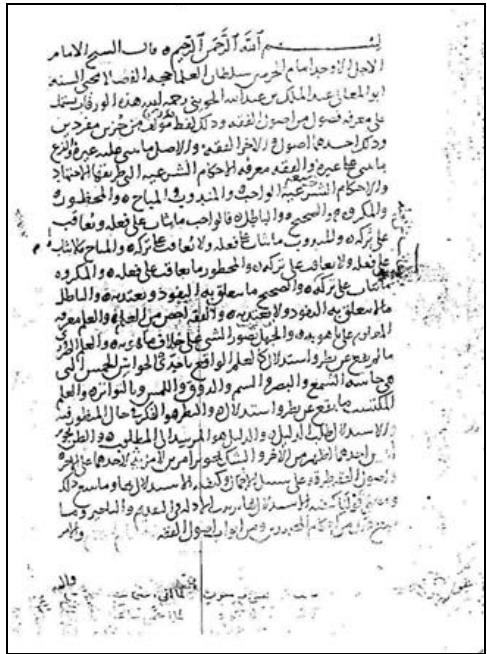 بسم الله الرحمن الرحيم قال الشيخ الامام
الاجل الاوحد امام الحرمين سلطان العلما حجه الفضلا محيي السنه
ابو المعالي عبد الملك بن عبد الله الجويني رحمه الله هذه الورقات تشتمل
على معرفه فصول من اصول الفقه وذلك لفظ مولف من جزين مفردين
وذكر احدهما اصول والاخر الفقه والاصل ما بني عليه غيره والفرع
ما بني على غيره والفقه معرفه الاحكام الشرعيه التي طريقها الاجتهاد
والاحكام الشرعيه سبعه الواجب والمندوب والمباح والمحظور
والمكروه والصحيح والباطل فالواجب ما يثاب على فعله ويعاقب
على تركه والمندوب ما يثاب على فعله ولا يعاقب على تركه والمباح ما لا يثاب
على فعله ولا يعاقب على تركه والمحظور ما يعاقب على فعله والمكروه
ما يثاب على تركه والصحيح ما يتعلق به النفوذ ويعتد به والباطل
ما لا يتعلق به النفوذ ولا يعتد به والفقه اخص من العلم والعلم معرفه
المعلوم على ما هو به والجهل تصور الشي على خلاف ما هو به والعلم الضروري
ما لم يقع عن نظر واستدلال كالعلم الواقع باحدى الحواس الخمس التي
هي حاسه السمع والبصر والشم والذوق واللمس وبالتواتر والعلم
المكتسب ما يقع عن نظر واستدلال والنظر هو الفكر في حال المنظور فيه
والاستدلال طلب الدليل والدليل هو المرشد الى المطلوب والظن تجويز
امرين احدهما اظهر من الاخر والشك تجويز امرين لا مزيه لاحدهما على الاخر
واصول الفقه طرقه على سبيل الاجمال وكيفيه الاستدلال بها وما يتبع ذلك
ومعنى قولنا كيفيه الاستدلال بها ترتيب الادله في التقديم والتاخير وما
احكام المجتهدين ومن ابواب اصول الفقه